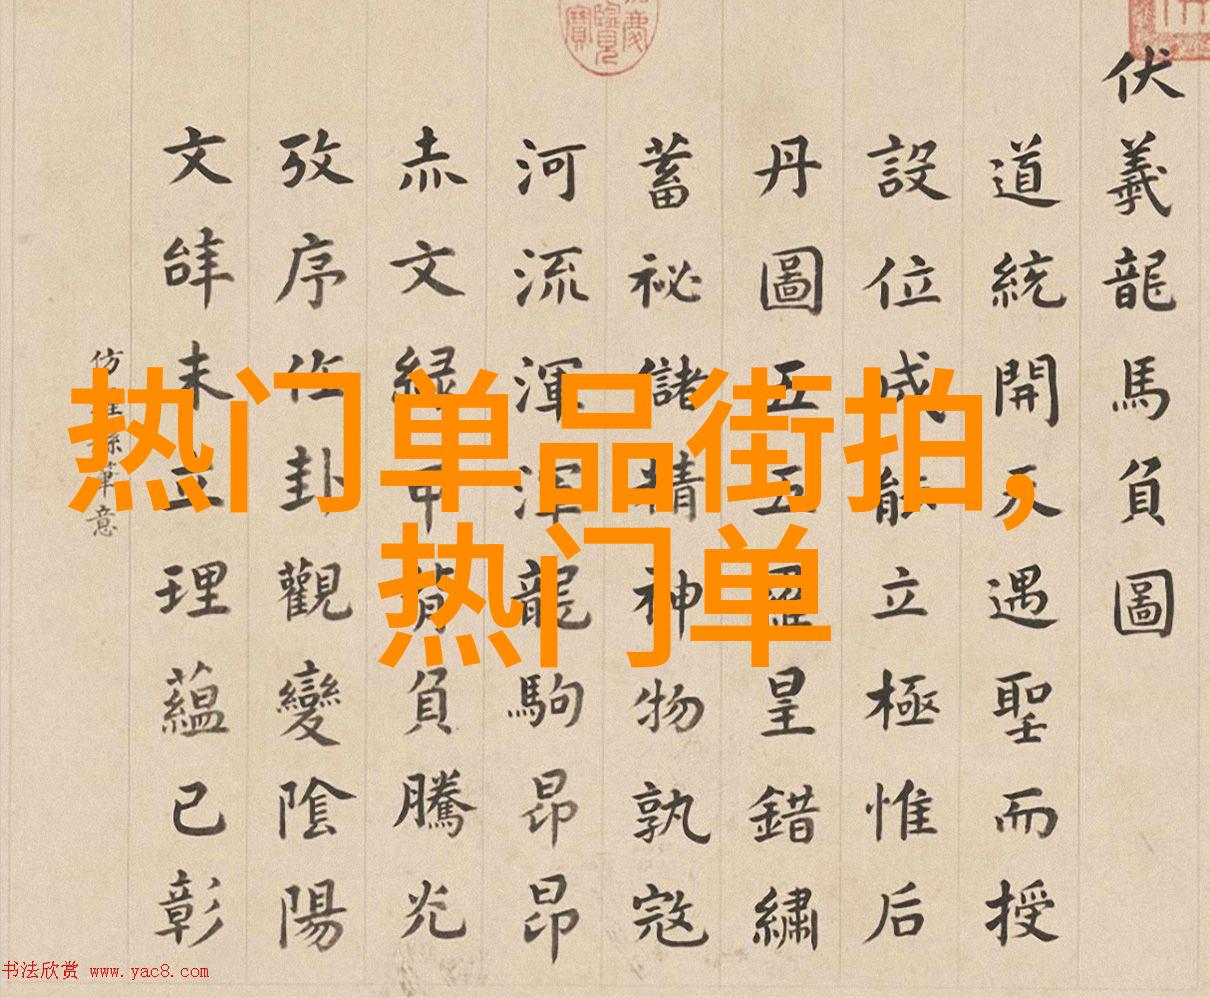 伏羲龍馬負圖
道統開天遇聖而授
設位成能立極惟后
丹圖五五羅星錯繡
蓄祕儲精神物孰寇
河流渾渾龍駒昂昂
赤文綠甲背負騰光
攷序作卦觀變陰陽
文辭未立理蘊已彰
仿筆意
热门单品街拍，
热门单
书法欣赏 www.yac8.com